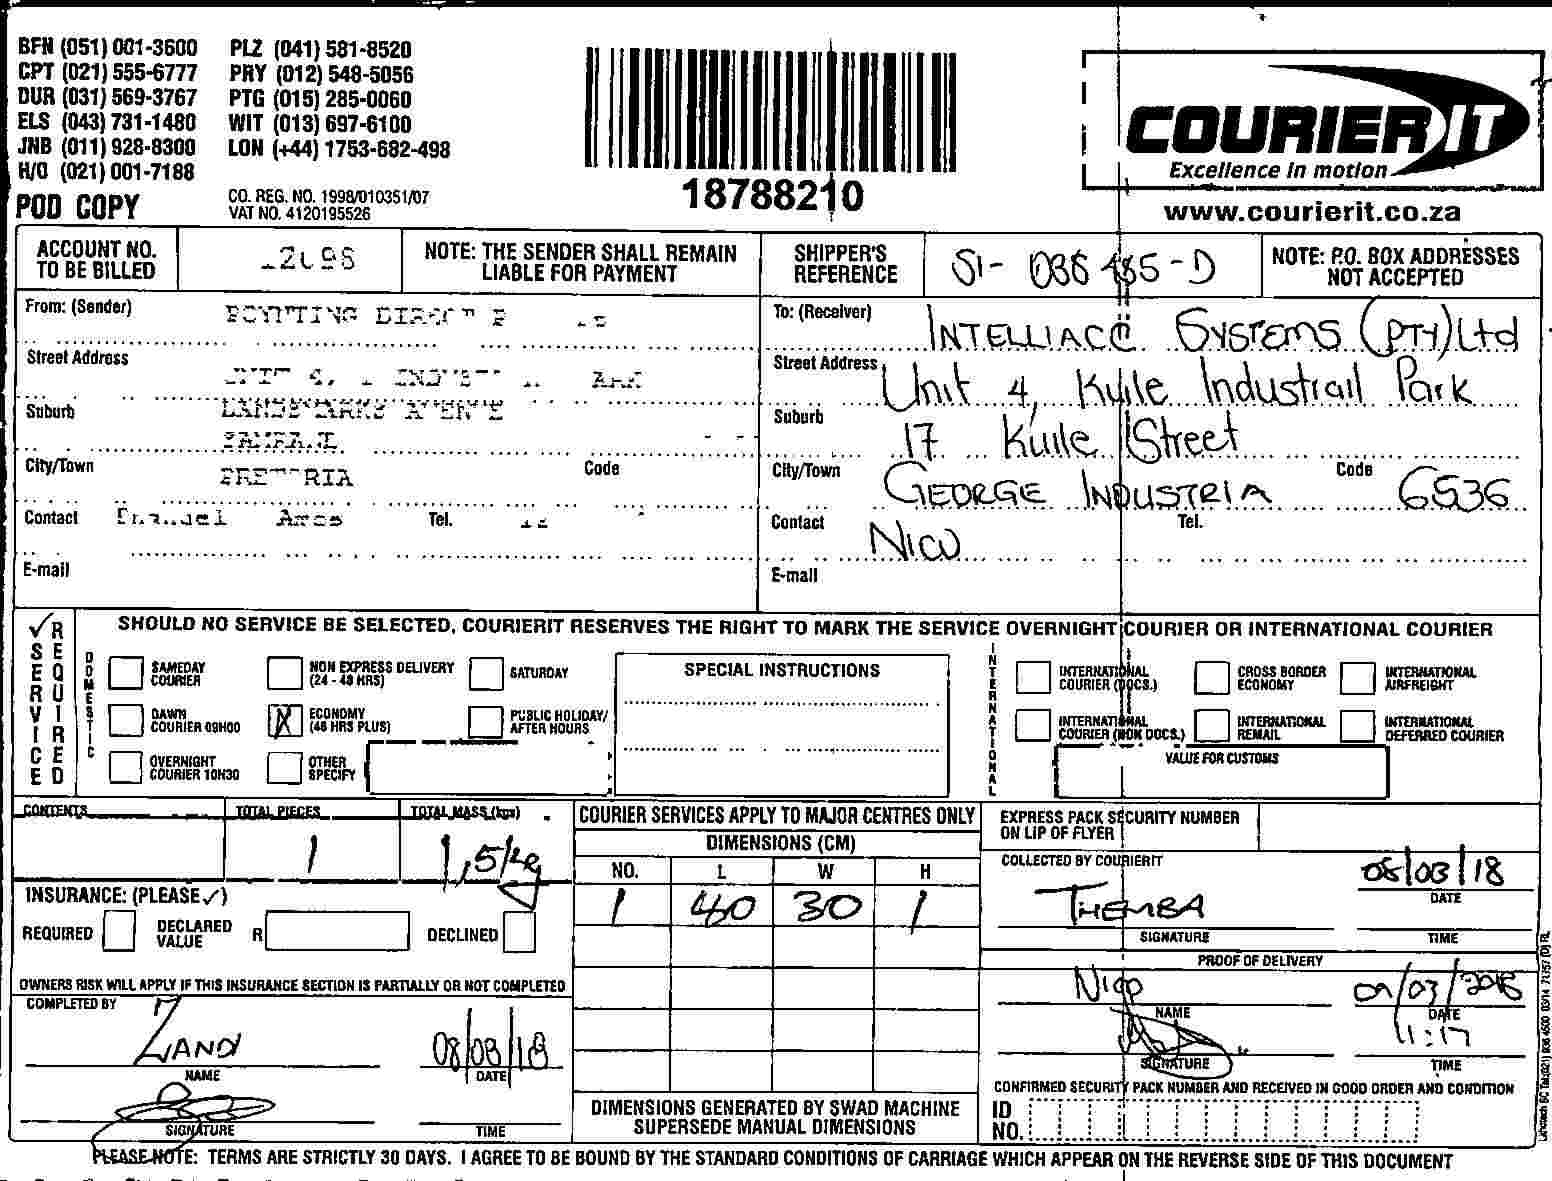 BFN (051) 001-3600 PLZ (041) 581-8520
CPT (021) 555-6777 PRY (012) 548-5056
DUR (031) 569-3767 PTG (015) 285-0060
ELS (043) 731-1480 WIT (013) 697-6100
JNB (011) 928-8300 LON (+44) 1753-682-498
H/O (021) 001-7188
POD COPY
CO. REG. NO. 1998/010351/07
VAT NO. 4120195526
18788210
COURIER IT
Excellence in motion
www.courierit.co.za
ACCOUNT NO. TO BE BILLED
NOTE: THE SENDER SHALL REMAIN LIABLE FOR PAYMENT
SHIPPER'S REFERENCE SI-
NOTE: P.O. BOX ADDRESSES NOT ACCEPTED
From: (Sender)
Street Address
Suburb
City/Town PRETORIA Code
Contact Tel.
E-mail
To: (Receiver) INTELLIACC SYSTEMS (PTY) Ltd
Street Address Unit 4, Kuile Industrail Park
Suburb 17 Kuile Street
City/Town GEORGE INDUSTRIA Code 6536
Contact Nico Tel.
E-mail
✓ SERVICE REQUIRED
SHOULD NO SERVICE BE SELECTED, COURIERIT RESERVES THE RIGHT TO MARK THE SERVICE OVERNIGHT COURIER OR INTERNATIONAL COURIER
DOMESTIC
SAMEDAY COURIER
NON EXPRESS DELIVERY (24 - 48 HRS)
SATURDAY
DAWN COURIER 09H00
X ECONOMY (48 HRS PLUS)
PUBLIC HOLIDAY/ AFTER HOURS
OVERNIGHT COURIER 10H30
OTHER SPECIFY
SPECIAL INSTRUCTIONS
INTERNATIONAL
INTERNATIONAL COURIER (DOCS.)
CROSS BORDER ECONOMY
INTERNATIONAL AIRFREIGHT
INTERNATIONAL COURIER (NON DOCS.)
INTERNATIONAL REMAIL
INTERNATIONAL DEFERRED COURIER
VALUE FOR CUSTOMS
CONTENTS
TOTAL PIECES 1
TOTAL MASS (kgs) 1,5/kg
INSURANCE: (PLEASE ✓)
REQUIRED DECLARED VALUE R DECLINED
OWNERS RISK WILL APPLY IF THIS INSURANCE SECTION IS PARTIALLY OR NOT COMPLETED
COMPLETED BY
ZANDI 08/03/18
NAME DATE
SIGNATURE TIME
COURIER SERVICES APPLY TO MAJOR CENTRES ONLY
DIMENSIONS (CM)
NO. L W H
1 40 30 1
DIMENSIONS GENERATED BY SWAD MACHINE SUPERSEDE MANUAL DIMENSIONS
EXPRESS PACK SECURITY NUMBER ON LIP OF FLYER
COLLECTED BY COURIERIT
THEMBA 08/03/18
DATE
SIGNATURE TIME
PROOF OF DELIVERY
Nico 09/03/2018
NAME DATE
11:17
SIGNATURE TIME
CONFIRMED SECURITY PACK NUMBER AND RECEIVED IN GOOD ORDER AND CONDITION
ID NO.
PLEASE NOTE: TERMS ARE STRICTLY 30 DAYS. I AGREE TO BE BOUND BY THE STANDARD CONDITIONS OF CARRIAGE WHICH APPEAR ON THE REVERSE SIDE OF THIS DOCUMENT